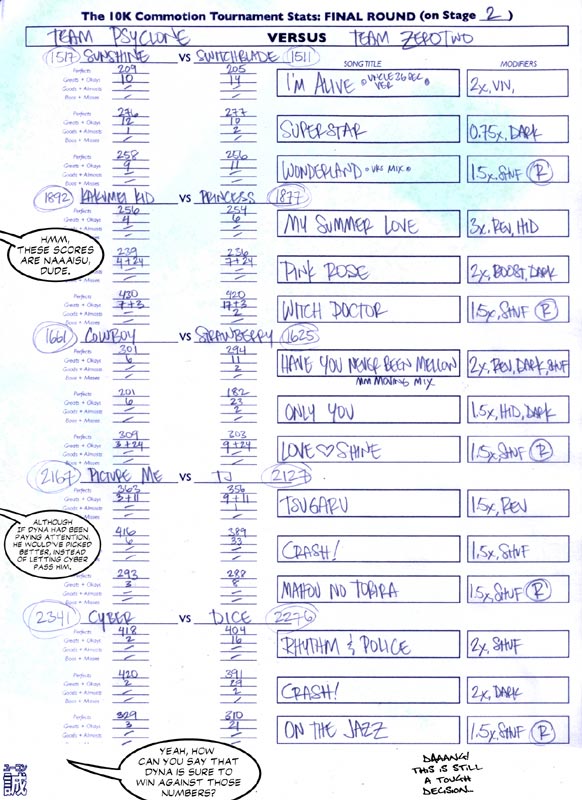 The 10K Commotion Tournament Stats: FINAL ROUND (on Stage 2)
TEAM PSYCLONE VERSUS TEAM ZEROTWO
1517 SUNSHINE VS SWITCHBLADE 1511
SONG TITLE MODIFIERS
Perfects 209 205
Greats + Okays 10 14
Goods + Almosts
Boos + Misses
I'M ALIVE VER 2X, VN,
Perfects 276 277
Greats + Okays 12 10
Goods + Almosts 1 2
Boos + Misses
SUPERSTAR 0.75X, DARK
Perfects 258 256
Greats + Okays 9 11
Goods + Almosts
Boos + Misses
WONDERLAND MIX 1.5X, SHUF R
1892 KAKUMEI KID VS PRINCESS 1877
Perfects 256 254
Greats + Okays 4 6
Goods + Almosts
Boos + Misses
MY SUMMER LOVE 3X, REV, HID
HMM,
THESE SCORES
ARE NAAAISU,
DUDE.
Perfects 239 236
Greats + Okays 4+24 7+24
Goods + Almosts
Boos + Misses
PINK ROSE 2X, BOOST, DARK
Perfects 430 420
Greats + Okays 7+3 17+3
Goods + Almosts 2
Boos + Misses
WITCH DOCTOR 1.5X, SHUF R
1661 COWBOY VS STRAWBERRY 1625
Perfects 301 294
Greats + Okays 6 11
Goods + Almosts 2
Boos + Misses
HAVE YOU NEVER BEEN MELLOW 2X, REV, DARK, SHUF
MM MOVING MIX
Perfects 201 182
Greats + Okays 6 23
Goods + Almosts 2
Boos + Misses
ONLY YOU 1.5X, HID, DARK
Perfects 309 303
Greats + Okays 3+24 9+24
Goods + Almosts
Boos + Misses
LOVE♡SHINE 1.5X, SHUF R
2167 PICTURE ME VS TJ 2127
Perfects 363 356
Greats + Okays 3+11 9+11
Goods + Almosts 1
Boos + Misses
TSUGARU 1.5X, REV
ALTHOUGH
IF DYNA HAD BEEN
PAYING ATTENTION,
HE WOULD'VE PICKED
BETTER, INSTEAD
OF LETTING CYBER
PASS HIM.
Perfects 416 389
Greats + Okays 6 33
Goods + Almosts
Boos + Misses
CRASH! 1.5X, SHUF
Perfects 293 288
Greats + Okays 3 8
Goods + Almosts
Boos + Misses
MAHOU NO TOBIRA 1.5X, SHUF R
2341 CYBER VS DICE 2276
Perfects 418 404
Greats + Okays 2 16
Goods + Almosts
Boos + Misses
RHYTHM & POLICE 2X, SHUF
Perfects 420 391
Greats + Okays 2 29
Goods + Almosts 2
Boos + Misses
CRASH! 2X, DARK
Perfects 329 310
Greats + Okays 3 21
Goods + Almosts
Boos + Misses
ON THE JAZZ 1.5X, SHUF R
YEAH, HOW
CAN YOU SAY THAT
DYNA IS SURE TO
WIN AGAINST THOSE
NUMBERS?
DAAANG!
THIS IS STILL
A TOUGH
DECISION